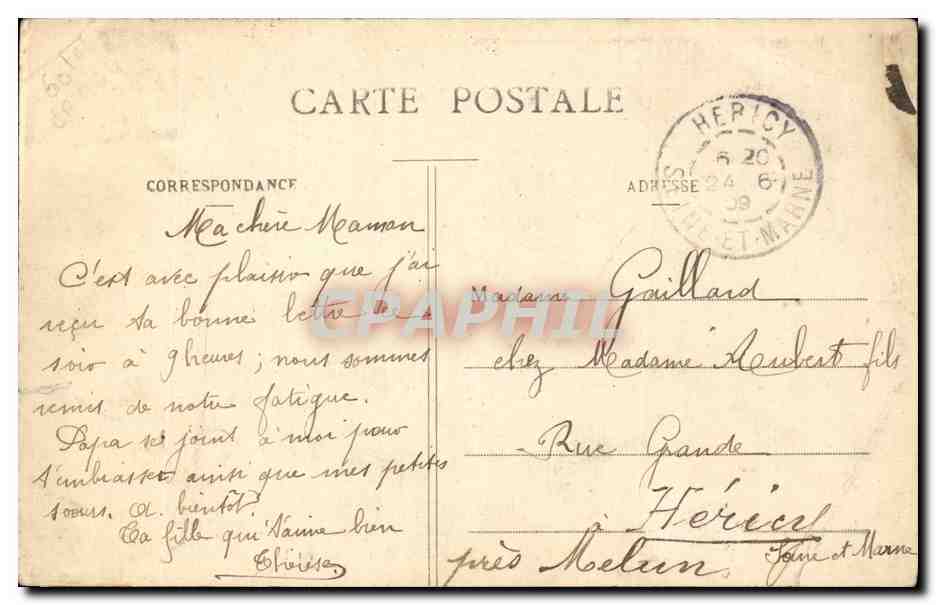 CARTE POSTALE
CORRESPONDANCE
Ma chère Maman
C'est avec plaisir que j'ai
reçu ta bonne lettre ce
soir à 9 heures ; nous sommes
remis de notre fatigue.
Papa se joint à moi pour
t'embrasser ainsi que mes petites
soeurs. A bientôt
Ta fille qui t'aime bien
Thérèse
ADRESSE
HERICY
6 20
24 6
09
SEINE-ET-MARNE
Madame Gaillard
chez Madame Aubert fils
Rue Grande
à Héricy
près Melun. Seine et Marne
CPAPHIL